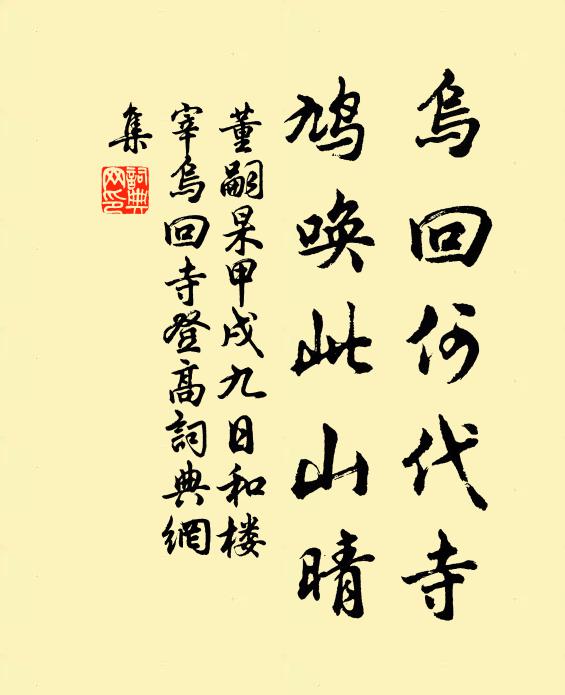 烏回何代寺
鳩唤此山晴
董嗣杲甲戌九日和楼
宰烏回寺登高詞典網
集
詞典
网印